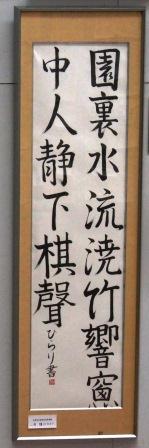 園裏水流澆竹響窓
中人静下棋聲
ひらり書